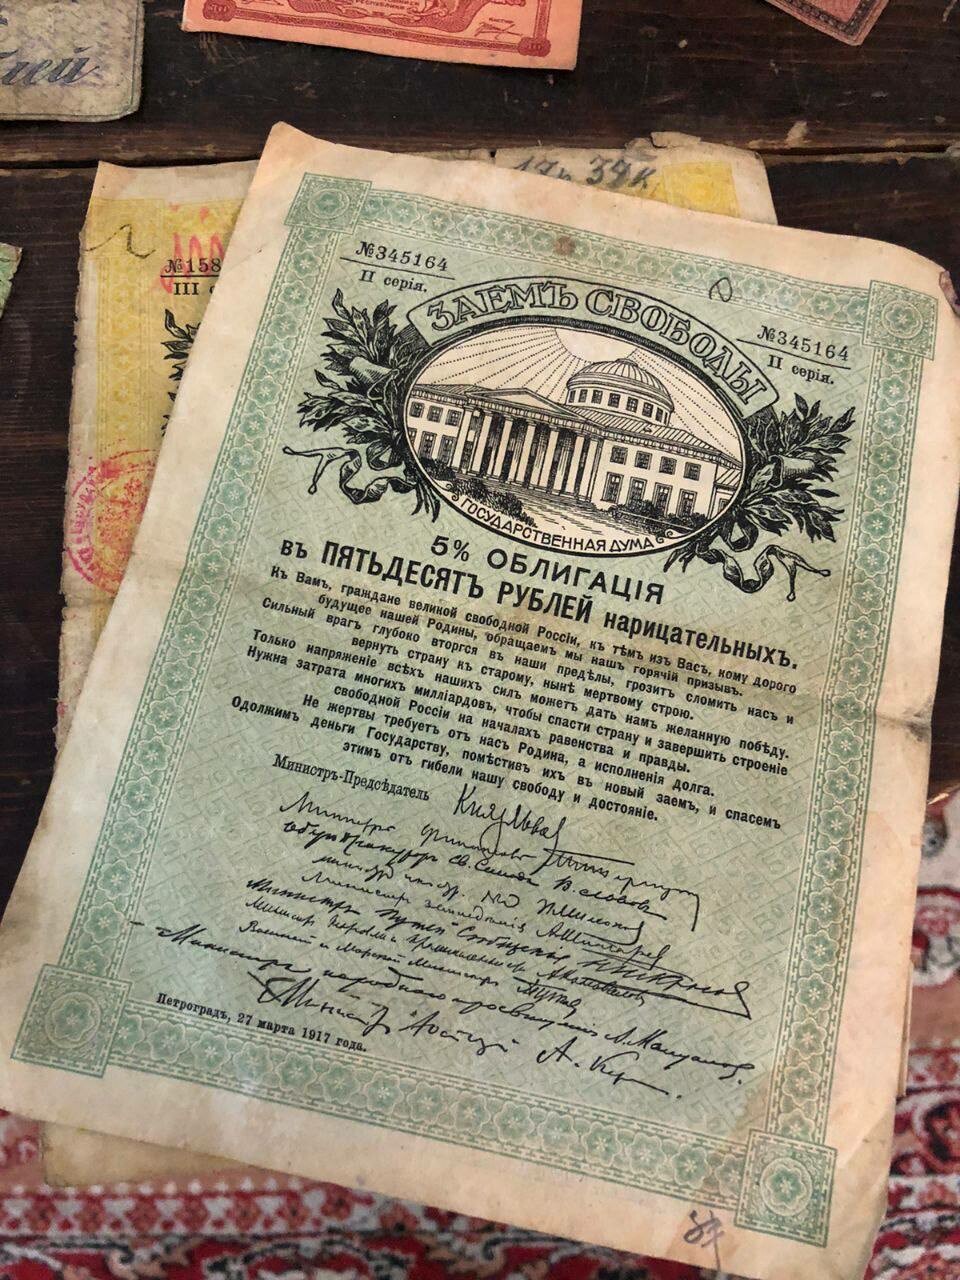 лей
17р. 34к.
№158
III с
№345164
II серія.
№345164
II серія.
ЗАЕМЪ СВОБОДЫ
ГОСУДАРСТВЕННАЯ ДУМА
5% ОБЛИГАЦІЯ
въ ПЯТЬДЕСЯТЪ РУБЛЕЙ нарицательныхъ.
Къ Вамъ, граждане великой свободной Россіи, къ тѣмъ изъ Васъ, кому дорого
будущее нашей Родины, обращаемъ мы нашъ горячій призывъ.
Сильный врагъ глубоко вторгся въ наши предѣлы, грозитъ сломить насъ и
вернуть страну къ старому, нынѣ мертвому строю.
Только напряженіе всѣхъ нашихъ силъ можетъ дать намъ желанную побѣду.
Нужна затрата многихъ милліардовъ, чтобы спасти страну и завершить строеніе
свободной Россіи на началахъ равенства и правды.
Не жертвы требуетъ отъ насъ Родина, а исполненія долга.
Одолжимъ деньги Государству, помѣстивъ ихъ въ новый заемъ, и спасемъ
этимъ отъ гибели нашу свободу и достояніе.
Министръ-Предсѣдатель Князь Львов
Министръ финансовъ
Оберъ-Прокуроръ Св. Синода В. Львовъ
Министр земледѣлія А. Шингарев
Министръ Путей Сообщенія
Министр Торговли и Промышленности А. Коновалов
Военный и Морской Министръ Гучков
Министръ народнаго просвѣщенія А. Мануйлов.
Министр Юстиціи А. Кер
Петроградъ, 27 марта 1917 года.